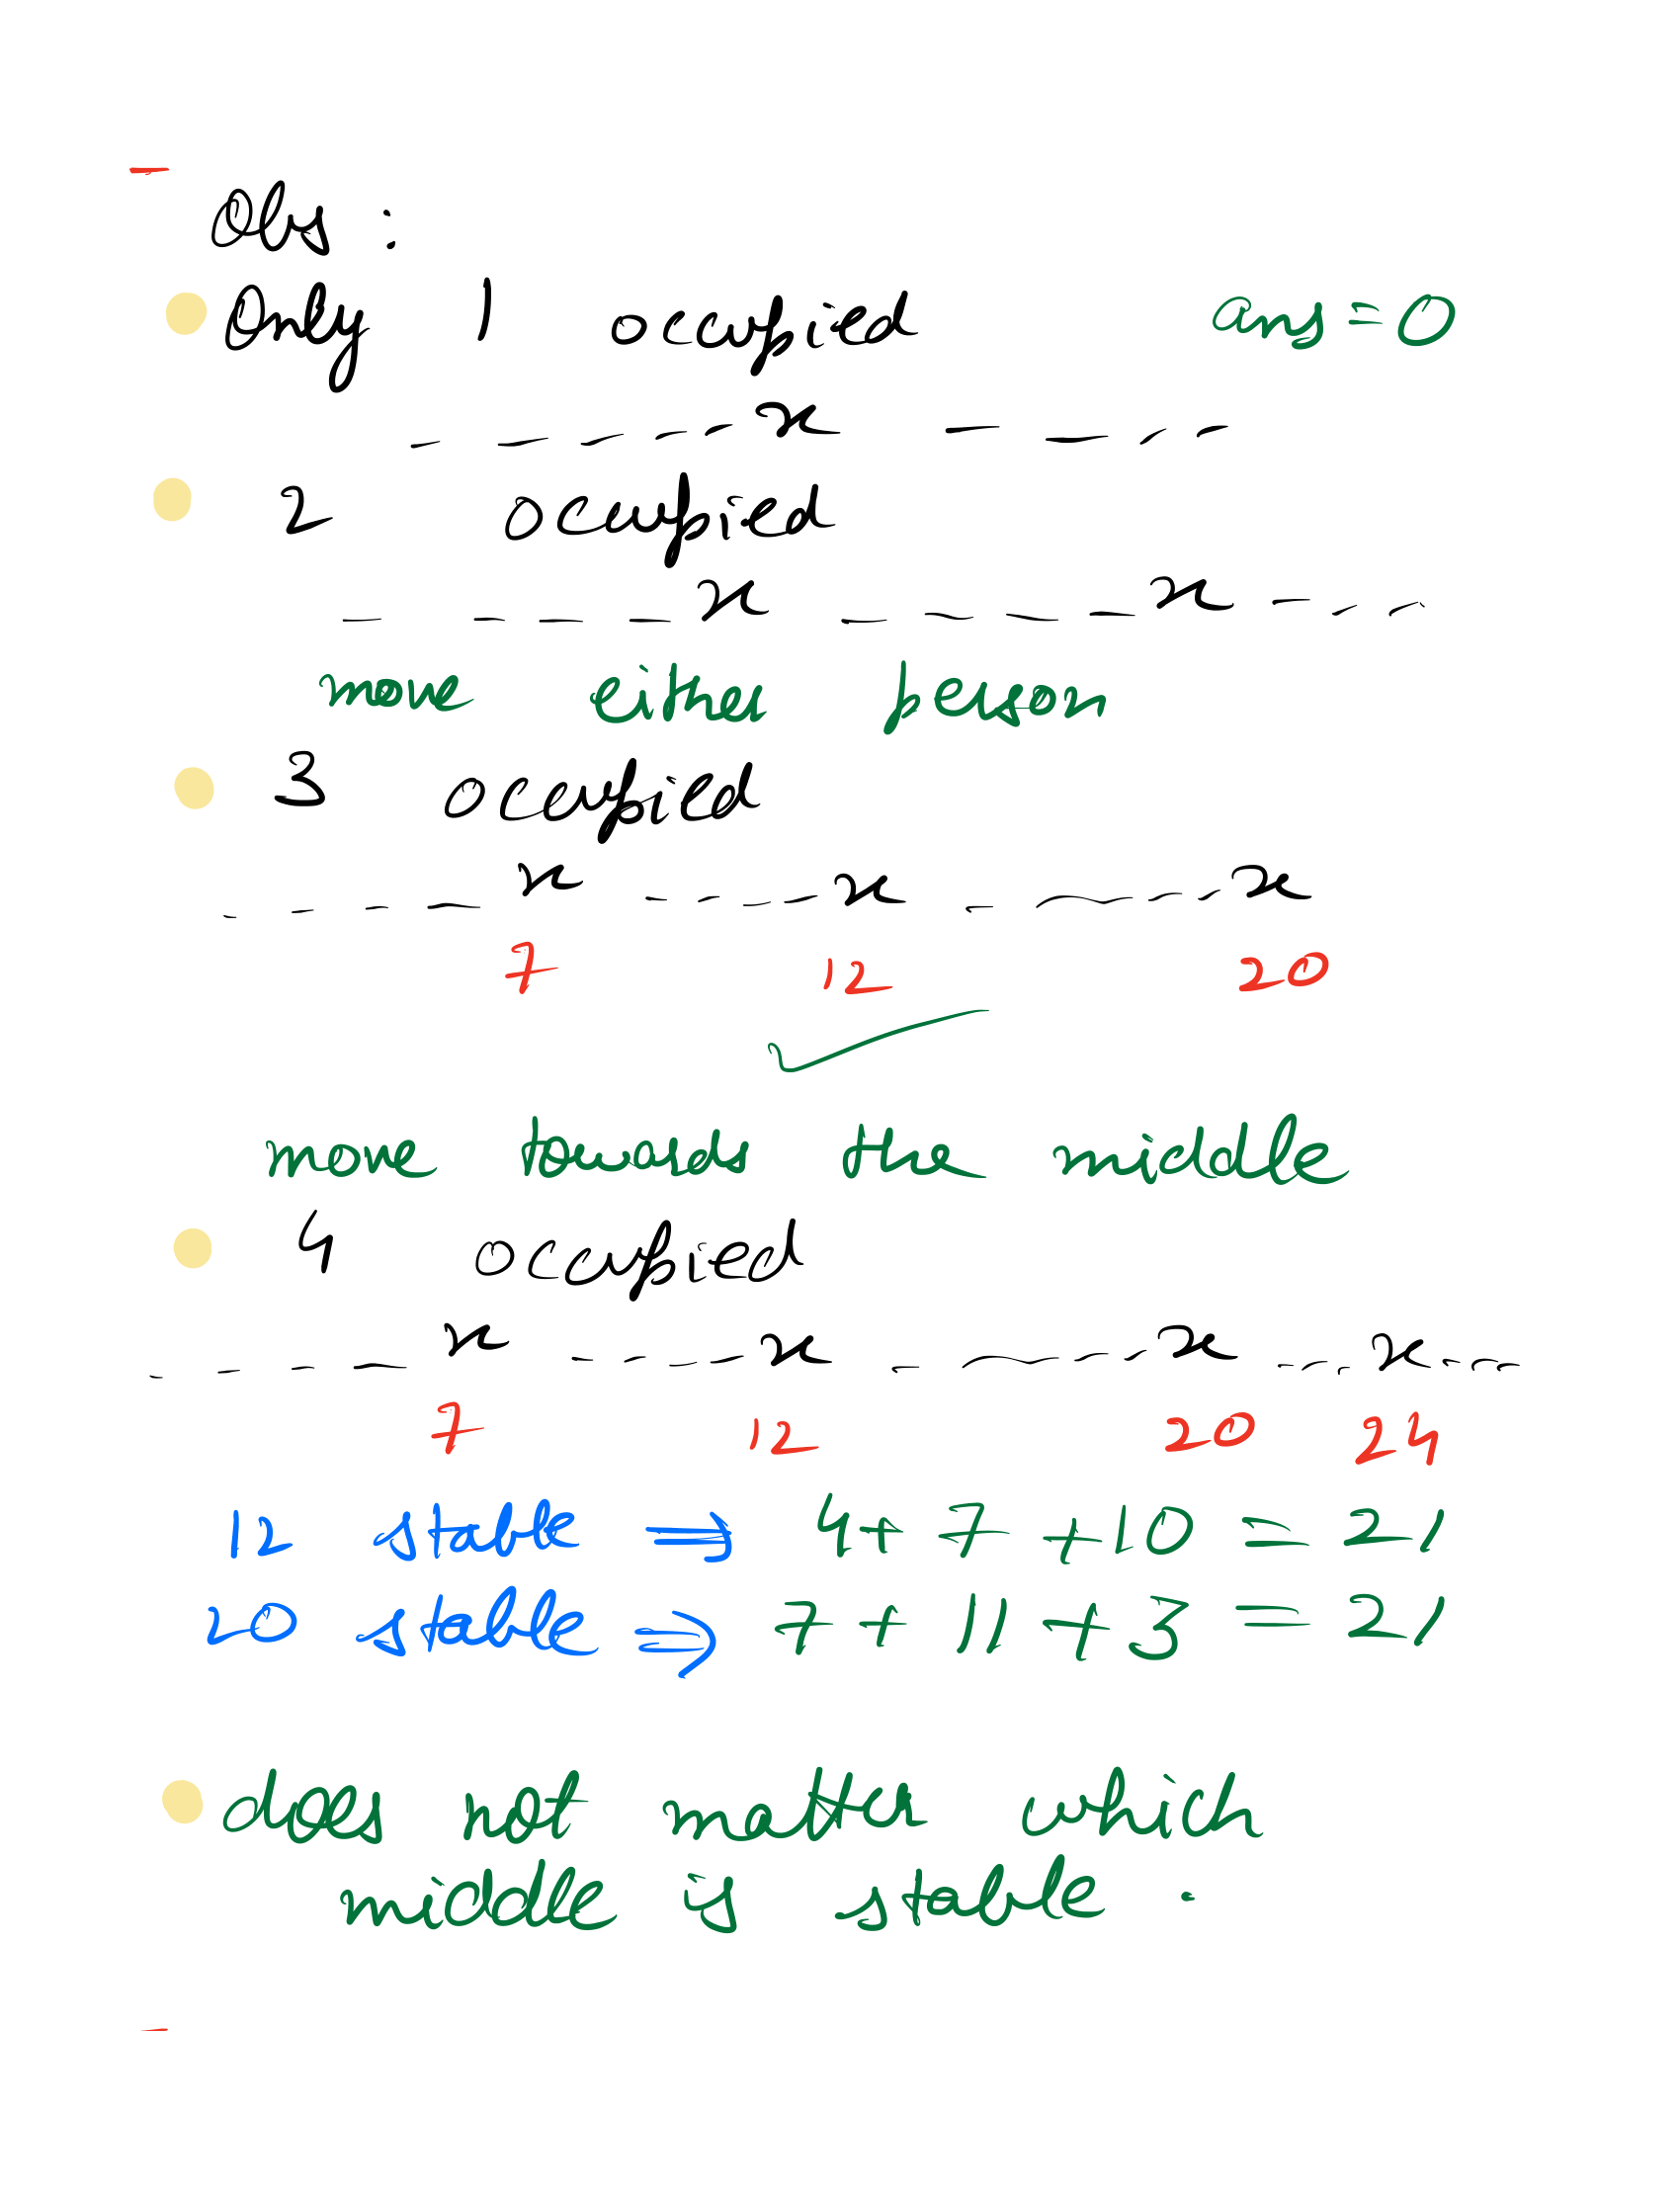 Obs :
Only 1 occupied ans = 0
_ _ _ _ _ x _ _ _ _
2 occupied
_ _ _ _ x _ _ _ _ x _ _ _
move either person
3 occupied
_ _ _ _ x _ _ _ _ x _ _ _ _ x
7 12 20
✓
move towards the middle
4 occupied
_ _ _ _ x _ _ _ _ x _ _ _ _ x _ _ _ x _ _ _
7 12 20 24
12 stable ⇒ 4 + 7 + 10 = 21
20 stable ⇒ 7 + 11 + 3 = 21
does not matter which
middle is stable .